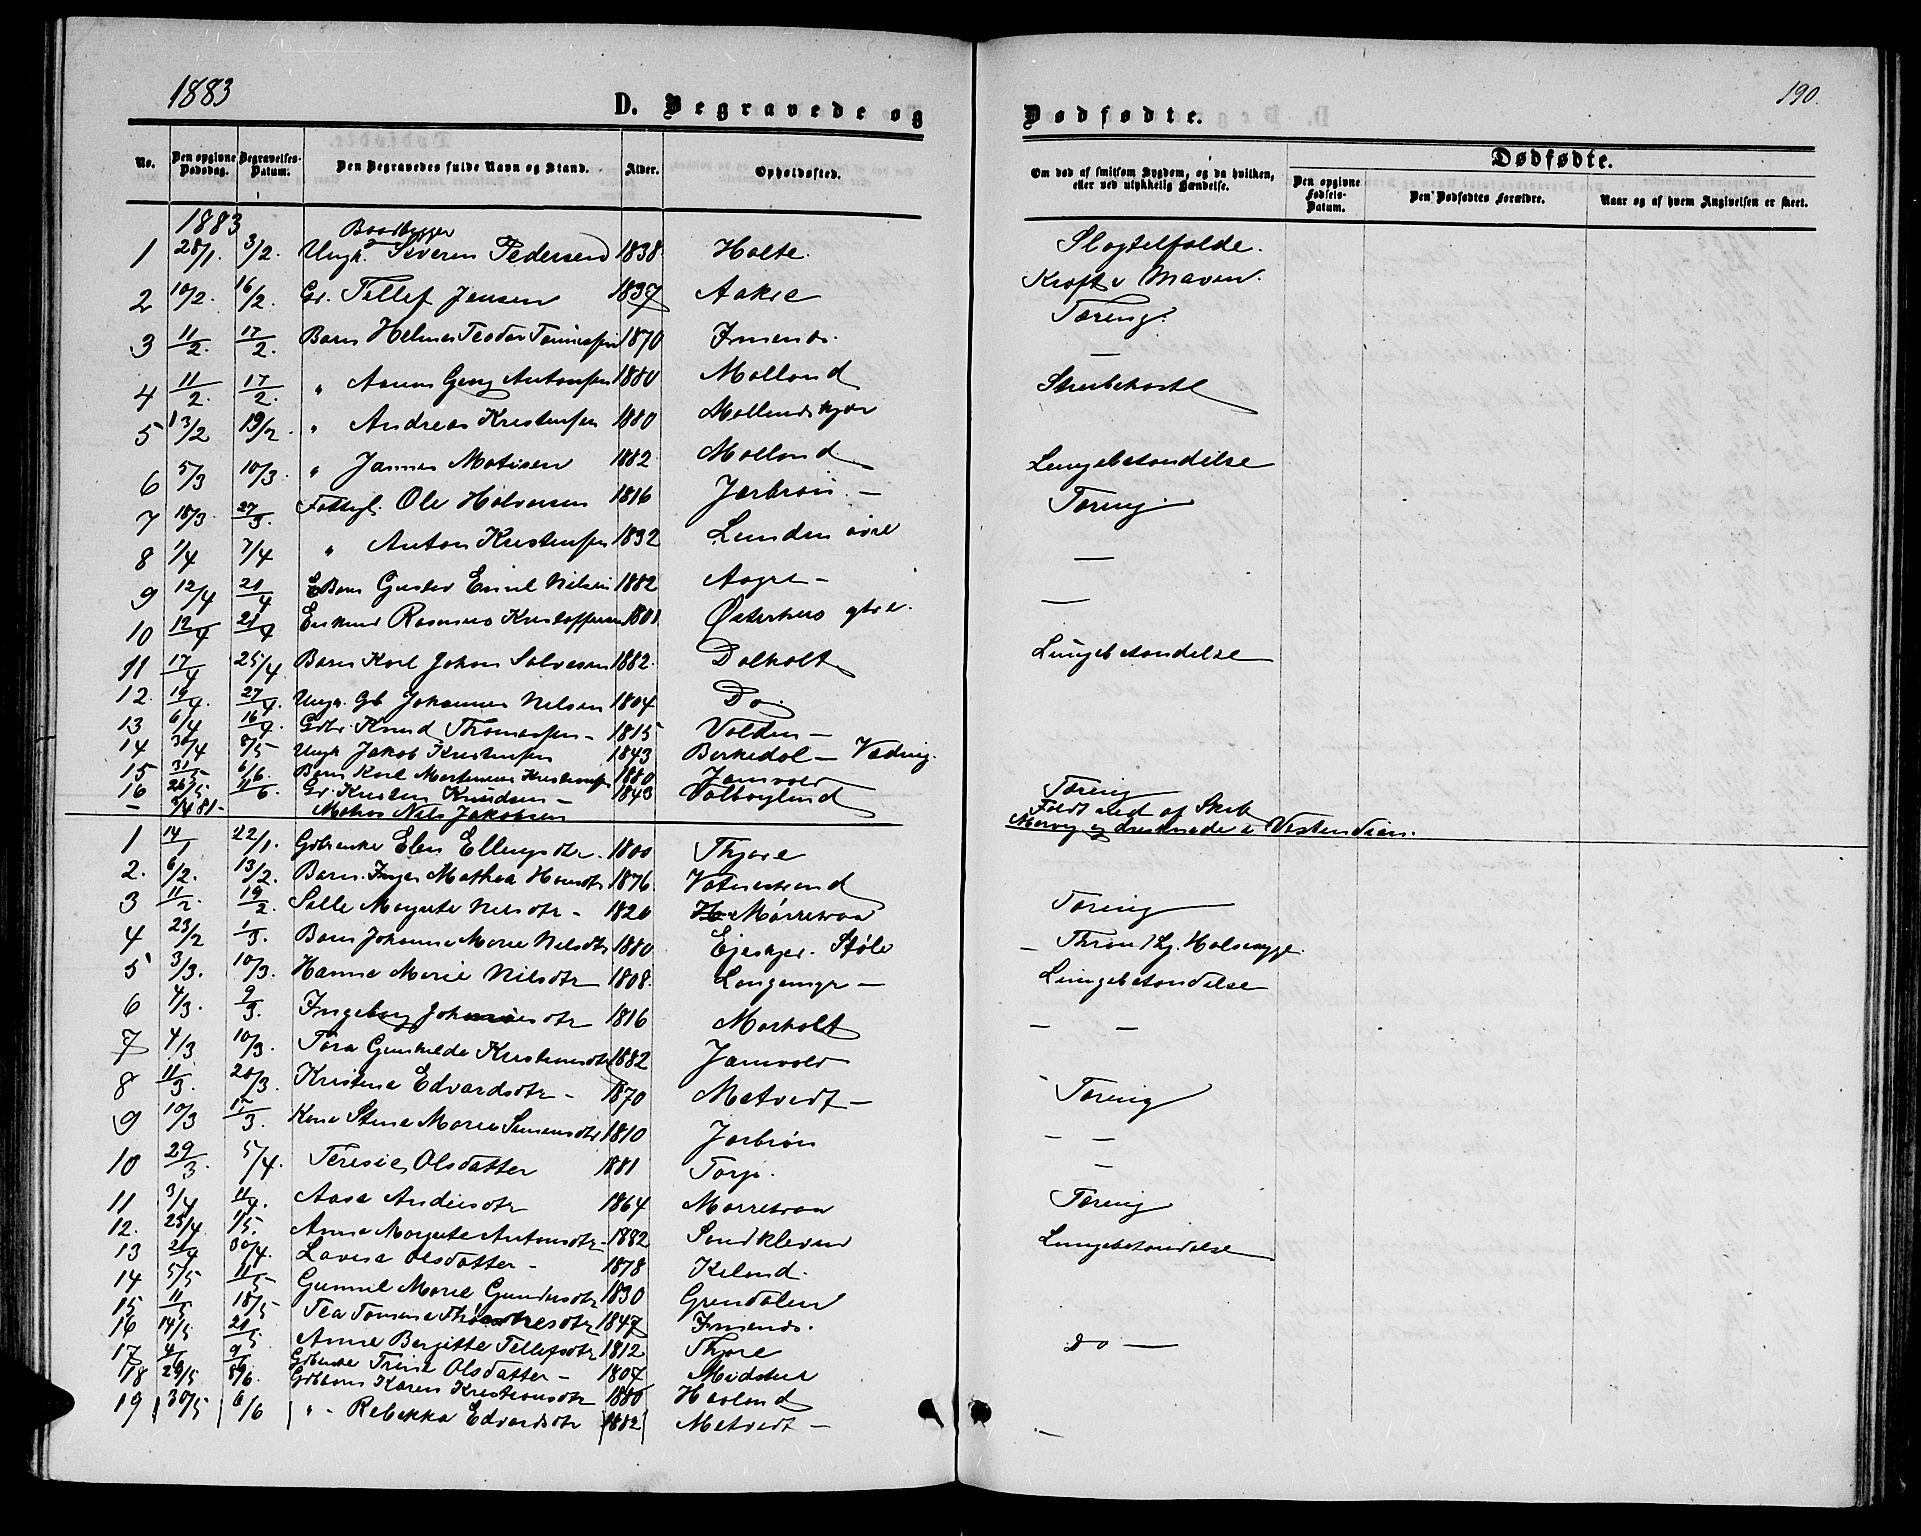 1883
D. Begravede og
Dødfødte.
190.
No.
Den opgivne Dødsdag.
Begravelses-Datum.
Den Begravedes fulde Navn og Stand.
Alder.
Opholdssted.
Om død af smitsom Sygdom, og da hvilken, eller ved ulykkelig Hændelse.
Dødfødte.
Den opgivne Fødsels-Datum.
Den Dødfødtes Forældre.
Naar og af hvem Angivelsen er skeet.
1883
Baadbygger
1 28/1. 3/2. Ungk. Severin Pedersen 1838. Holte. Slagtilfælde.
2 10/2. 16/2. Gr. Tellef Jensen 1837 Aakre Kræft i Maven.
3 11/2. 17/2. Barn Helmer Teodor 1870 Tæring.
4 11/2. 17/2. " Georg Antonsen 1880 Molland —
5 13/2 19/2. " Andreas Kristensen 1880 Mollandskjær Strubehoste
6 5/3 10/3. " Matisen 1882. Molland Lungebetændelse
7 18/3. 27/3. Ole Halvorsen 1816 Jærbrøn. — Tæring
8 1/4 7/4 " Anton Kristensen 1832 Lunden øvre —
9 12/4 21/4 Barn Gustav Emil Nilsen 1882 Aagre — —
10 12/4 21/4 Enkemd Rasmus Kristoffersen 1801 Østerhus
11 17/4 25/4. Barn Karl Johan Salvesen 1882. Dalholt Lungebetændelse
12. 19/4. 27/4. Ungk. Johannes Nilsen 1804 Do
13 6/4 16/4. Gdbr. Knud Thomassen — 1815 Valden —
14 30/4 8/5 Ungk Jakob Kristensen 1843 Birkedal —
15 31/5 6/6. Barn Karl Martinius 1880 Jamvold
16 26/5. 11/6. Gr. Kristen Knudsen — 1843 Tæring
— Matros Nils Jakobsen Faldt ned af Skib og druknede i
1 14/1 22/1. Gdbr.enke Elen Ellingsdtr. 1800 Thjøre
2. 6/2. 13/2. Barn. Inger Mathea 1876. Vatnestrand
3 11/2. 19/2. Salle Margrete Nilsdtr — 1820 Tæring —
4 23/2 1/3. Barn Johanne Marie Nilsdtr 1880 Støle
5 3/3. 10/3. Hanna Marie Nilsdtr 1808. Langemyr — Lungebetændelse
6 4/3. 9/3. Ingeborg 1816 Morholt — —
7 4/3 10/3. Tora Gunhilde Kristensdtr 1882 Jamvold
8 11/3. 20/3. Kristine Edvardsdtr — 1870 Metvedt — Tæring
9 10/3 17/3. Kone Stine Marie 1810 Jærbrøn — —
10 29/3. 5/4. Teresie Olsdatter 1881 Torp. —
11 3/4 11/4. Aase Andersdtr 1864 Tæring
12. 25/4 1/5. Anne Margrete Antonsdtr 1882 Sandkleven Lungebetændelse
13 21/4 30/4. Lovisa Olsdatter — 1878 Kiland.
14 5/5 11/5 Gunnil Marie Gundersdtr 1830 Grendalen
15 11/5 18/5 Tea Tomine 1847
16 14/5 21/5. Anne Bergitte Tellefsdtr 1812 Thjøre do —
17 4/6 9/6 Gdbenke Trine Olsdatter — 1807
18 29/5 8/6. Gdbbarn Karen Kristiansdtr 1880 Havland
19 30/5 6/6 " — Rebekka Edvardsdtr 1882 Metvedt — —